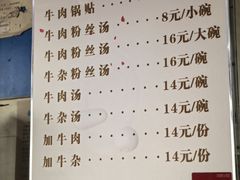 牛肉锅贴 ······ 8元/小碗
牛肉粉丝汤 ······ 16元/大碗
牛肉粉丝汤 ······ 16元/碗
牛杂粉丝汤 ······ 14元/碗
牛肉汤 ······ 14元/碗
牛杂汤 ······ 14元/份
加牛肉 ······ 14元/份
加牛杂 ······